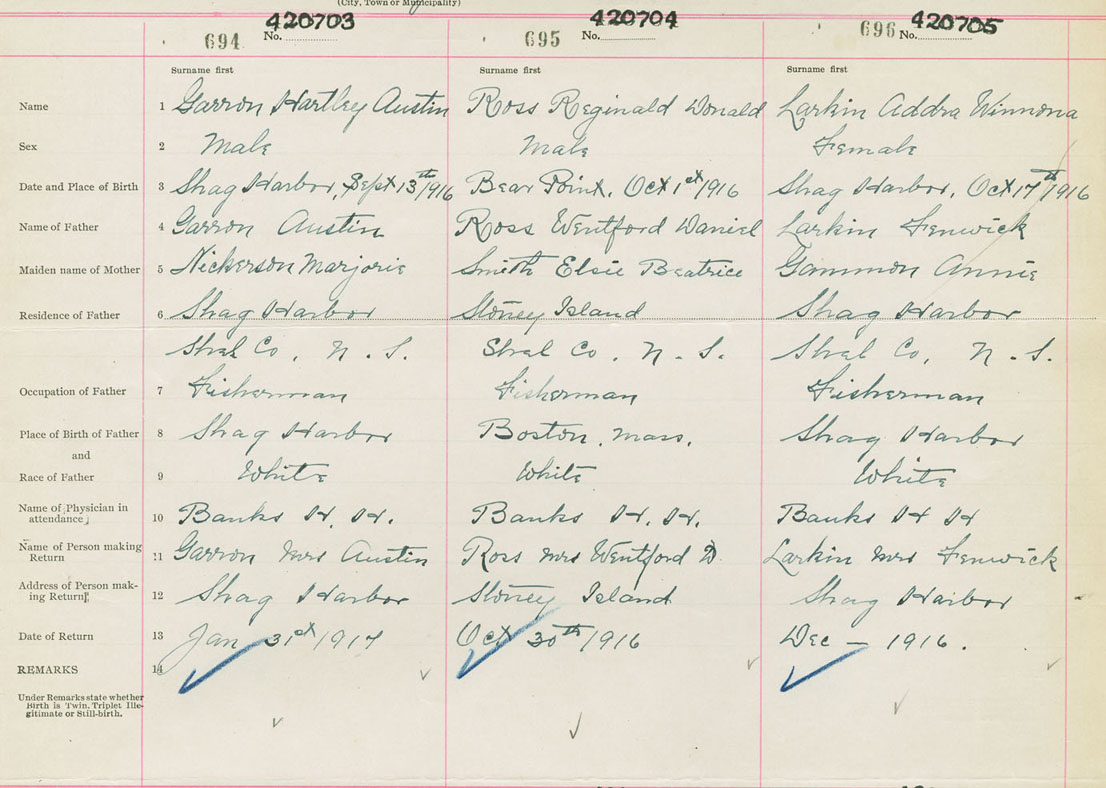 (City, Town or Municipality)
420703 420704 420705
694 No. 695 No. 696 No.
Surname first Surname first Surname first
Name 1 Garron Hartley Austin Ross Reginald Donald Larkin Addra Winnona
Sex 2 Male Male Female
Date and Place of Birth 3 Shag Harbor, Sept 13th/1916 Bear Point, Oct 1st/1916 Shag Harbor, Oct 17th/1916
Name of Father 4 Garron Austin Ross Wentford Daniel Larkin Fenwick
Maiden name of Mother 5 Nickerson Marjorie Smith Elsie Beatrice Gammon Annie
Residence of Father 6 Shag Harbor Stoney Island Shag Harbor
Shel Co, N. S. Shel Co, N. S. Shel Co, N. S.
Occupation of Father 7 Fisherman Fisherman Fisherman
Place of Birth of Father 8 Shag Harbor Boston, Mass. Shag Harbor
and
Race of Father 9 White White White
Name of Physician in
attendance 10 Banks H. H. Banks H. H. Banks H H
Name of Person making
Return 11 Garron Mrs Austin Ross Mrs Wentford D. Larkin Mrs Fenwick
Address of Person mak-
ing Return 12 Shag Harbor Stoney Island Shag Harbor
Date of Return 13 Jan 31st/1917 Oct 30th/1916 Dec — 1916.
REMARKS 14
Under Remarks state whether
Birth is Twin, Triplet Ille-
gitimate or Still-birth.